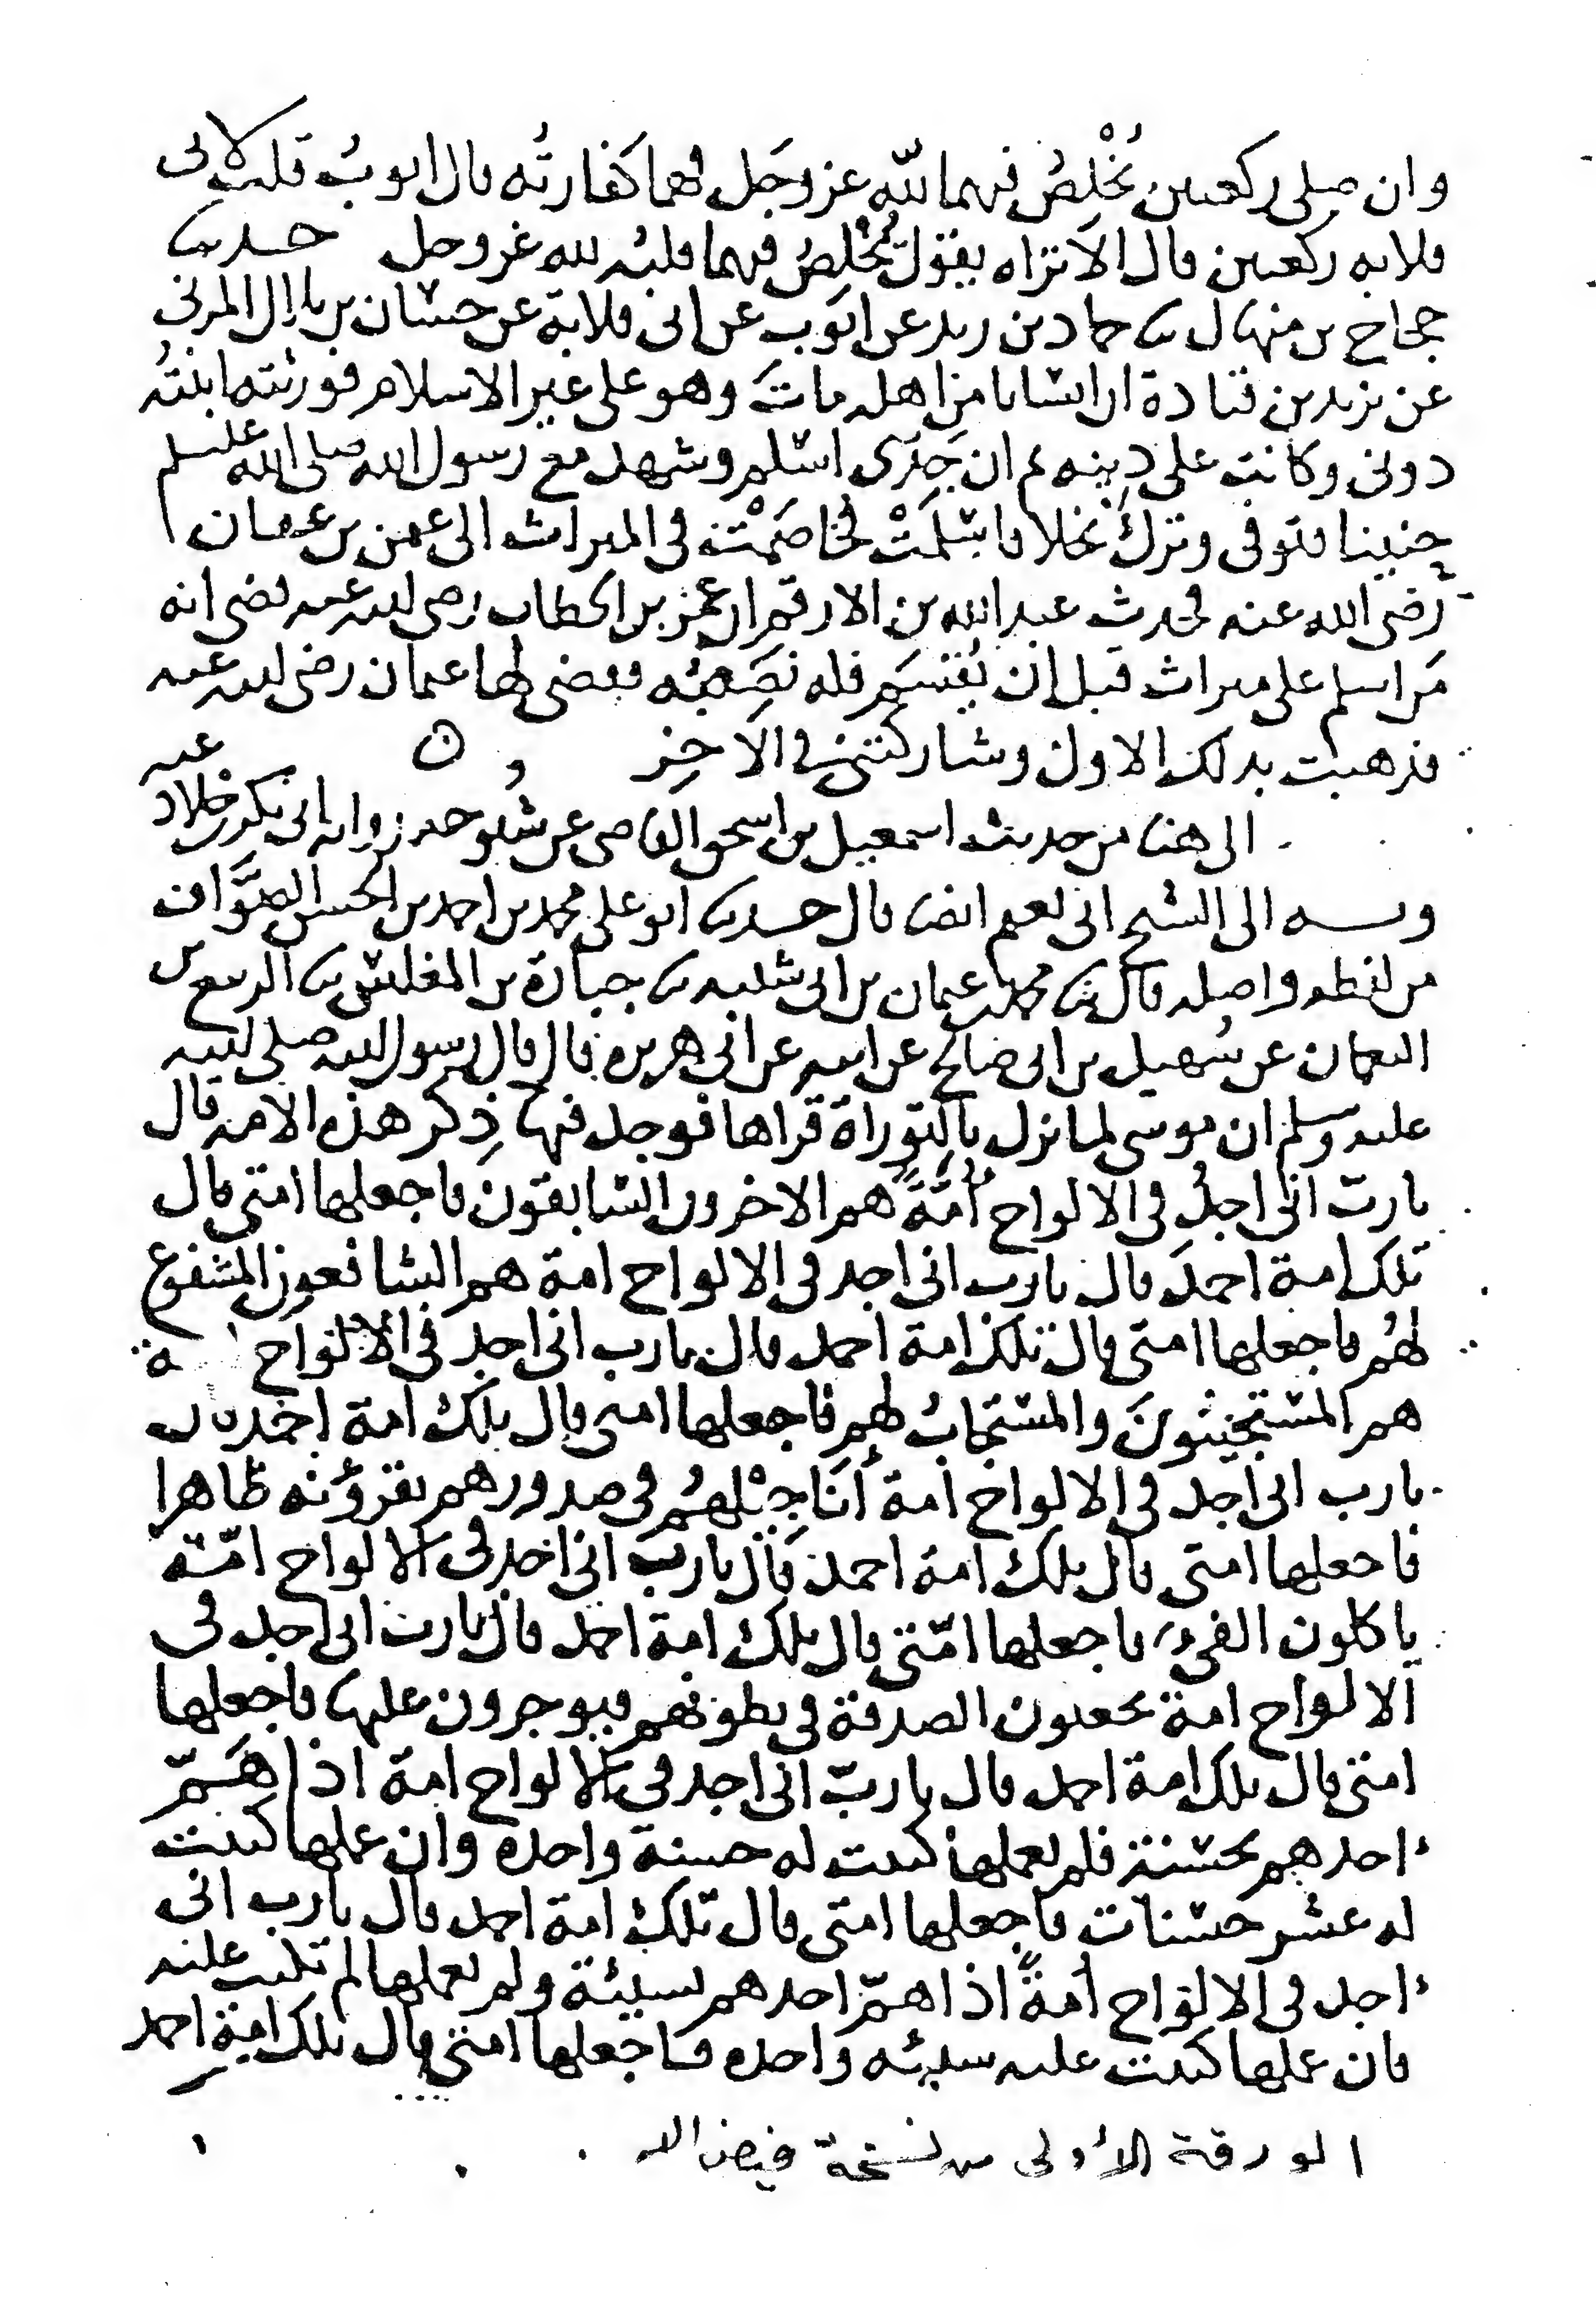 وان صلى ركعتين يُخْلِصُ فيهما لله عز وجَل فهما كفارتُه قال ايوبُ قلت لابى
قلابة ركعتين قال الا تراه يقول يُخْلِصُ فيهما قلبُه لله عز وجل حدثنا
حجاج بن منهال نا حماد بن زيد عن ايوب عن ابى قلابة عن حسان بن بلال المزنى
عن يزيد بن قتادة ان انسانا من اهله مات وهو على غير الاسلام فورثته ابنتُه
دونى وكانت على دينه ثم ان جَدّى اسلم وشهد مع رسول الله صلى الله عليه وسلم
حنينا فتوفى وترك نخلا فاسْلَمَتْ فخاصَمَتْه فى الميراث الى عثمن بن عفان
رضى الله عنه فحدث عبد الله بن الارقم ان عمر بن الخطاب رضى الله عنه قضى انه
مَن اسلم على ميراث قبل ان يُقْسَم فله نصيبُه فقضى لها عثمان رضى الله عنه
فذهبت بذلك الاول وشاركتنى فى الاخر
الى هنا من حديث اسمعيل بن اسحق القاضى عن شيوخه رواية ابى بكر بن خلاد عنه
وبه الى الشيخ ابى نعيم ايضا قال حدثنا ابو على محمد بن احمد بن الحسن الصوَّاف
من لفظه واصله قال نا محمد بن عثمان بن ابى شيبه نا جبارة بن المغلس نا الربيع بن
النعمان عن سُهيل بن ابى صالح عن ابيه عن ابى هريره قال قال رسول الله صلى الله
عليه وسلم ان موسى لما نزل بالتوراة قراها فوجد فيها ذِكر هذه الامه قال
يا ربّ انى اجدُ فى الالواح أُمَّةً هم الاخرون السابقون فاجعلها امتى قال
تلك امة احمدَ قال يا رب انى اجد فى الالواح امة هم الشافعون المشفوع
لهُم فاجعلها امتى قال تلك امة احمد قال يا رب انى اجد فى الالواح امة
هم المستجيبُونَ والمستجابُ لهم فاجعلها امتى قال تلك امة احمد قال
يا رب انى اجد فى الالواح امة أنَاجِيْلهُم فى صدورهم يقرؤنه ظاهرا
فاجعلها امتى قال تلك امة احمد قال يا رب انى اجد فى الالواح امّة
ياكلون الفىء فاجعلها امّتى قال تلك امة احمد قال يا رب انى اجد فى
الالواح امة يجعلون الصدقة فى بطونهم فيوجرون عليها فاجعلها
امتى قال تلك امة احمد قال يا ربّ انى اجد فى الالواح امة اذا هَمّ
احدهم بحسنة فلم يعملها كتبت له حسنة واحده وان عملها كتبت
له عشر حسنات فاجعلها امتى قال تلك امة احمد قال يا رب انى
اجد فى الالواح أمةً اذا همّ احدهم بسيئة ولم يعملها لم تكتب عليه
فان عملها كتبت عليه سيئه واحده فاجعلها امتى قال تلك امة احمد
الورقة الأولى من نسخة فيض الله